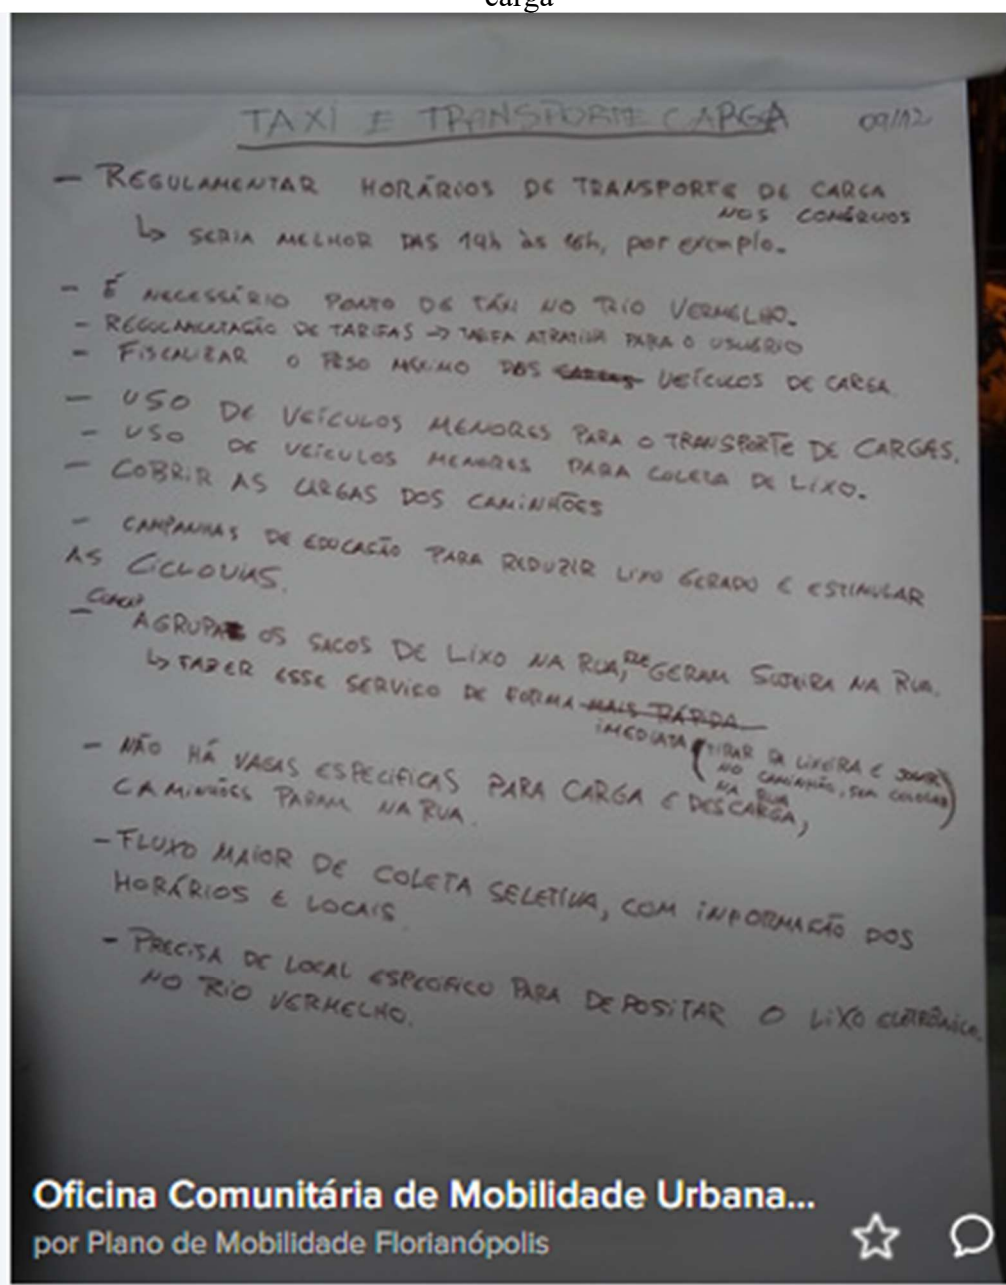 carga
TAXI E TRANSPORTE CARGA 09/12
- REGULAMENTAR HORÁRIOS DE TRANSPORTE DE CARGA
NOS COMÉRCIOS
↳ SERIA MELHOR DAS 14h às 16h, por exemplo.
- É NECESSÁRIO PONTO DE TÁXI NO RIO VERMELHO.
- REGULAMENTAÇÃO DE TARIFAS → TARIFA ATRATIVA PARA O USUÁRIO
- FISCALIZAR O PESO MÁXIMO DOS VEÍCULOS DE CARGA
- USO DE VEÍCULOS MENORES PARA O TRANSPORTE DE CARGAS.
- USO DE VEÍCULOS MENORES PARA COLETA DE LIXO.
- COBRIR AS CARGAS DOS CAMINHÕES
- CAMPANHAS DE EDUCAÇÃO PARA REDUZIR LIXO GERADO E ESTIMULAR
AS CICLOVIAS.
- AGRUPAR OS SACOS DE LIXO NA RUA, GERAM SUJEIRA NA RUA.
↳ FAZER ESSE SERVIÇO DE FORMA MAIS RÁPIDA
IMEDIATA (TIRAR DA LIXEIRA E JOGAR
NO CAMINHÃO, SEM COLOCAR
NA RUA)
- NÃO HÁ VAGAS ESPECIFICAS PARA CARGA E DESCARGA,
CAMINHÕES PARAM NA RUA.
- FLUXO MAIOR DE COLETA SELETIVA, COM INFORMAÇÃO DOS
HORÁRIOS E LOCAIS
- PRECISA DE LOCAL ESPECIFICO PARA DEPOSITAR O LIXO ELETRÔNICO
NO RIO VERMELHO.
Oficina Comunitária de Mobilidade Urbana...
por Plano de Mobilidade Florianópolis